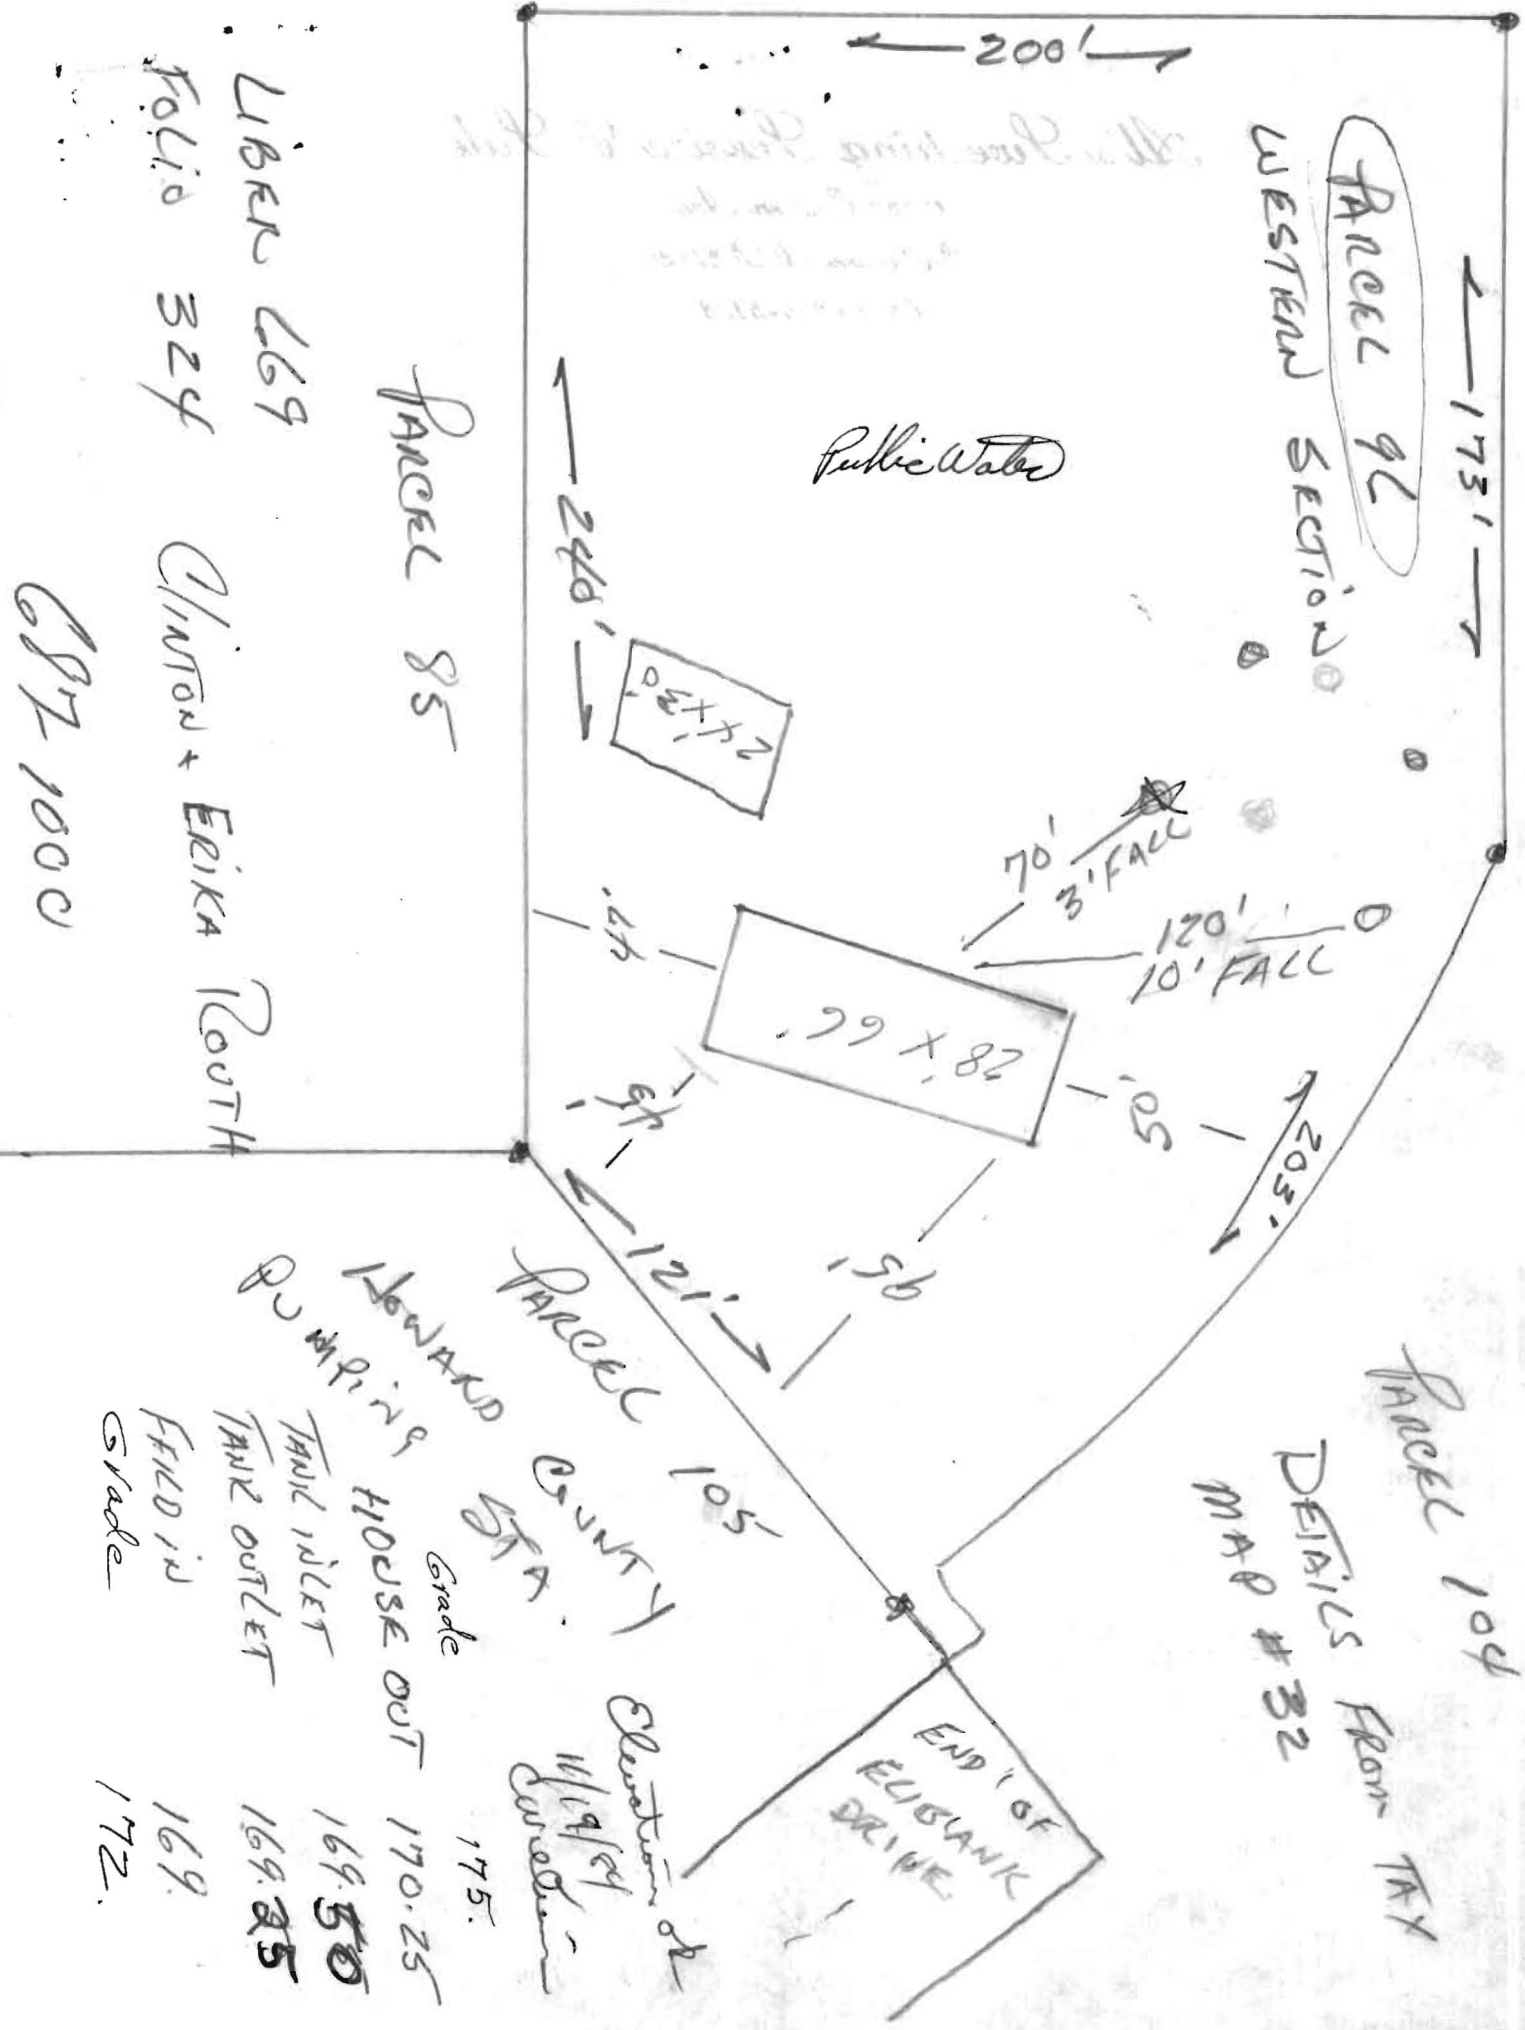 200'
173'
PARCEL 9L
WESTERN SECTION
Public Water
240'
24' X 30'
70'
3' FALL
120'
10' FALL
47'
28' X 66'
50'
203'
45'
95'
121'
PARCEL 85
LIBER 669
FOLIO 324
CLINTON + ERIKA ROUTH
PARCEL 104
DETAILS FROM TAX
MAP #32
PARCEL 105
HOWARD COUNTY
PUMPING STA.
END OF
ELIBANK
DRIVE
Elevations ok
11/19/84
Grade 175.
HOUSE OUT 170.25
TANK INLET 169.50
TANK OUTLET 169.25
FEILD IN 169.
Grade 172.